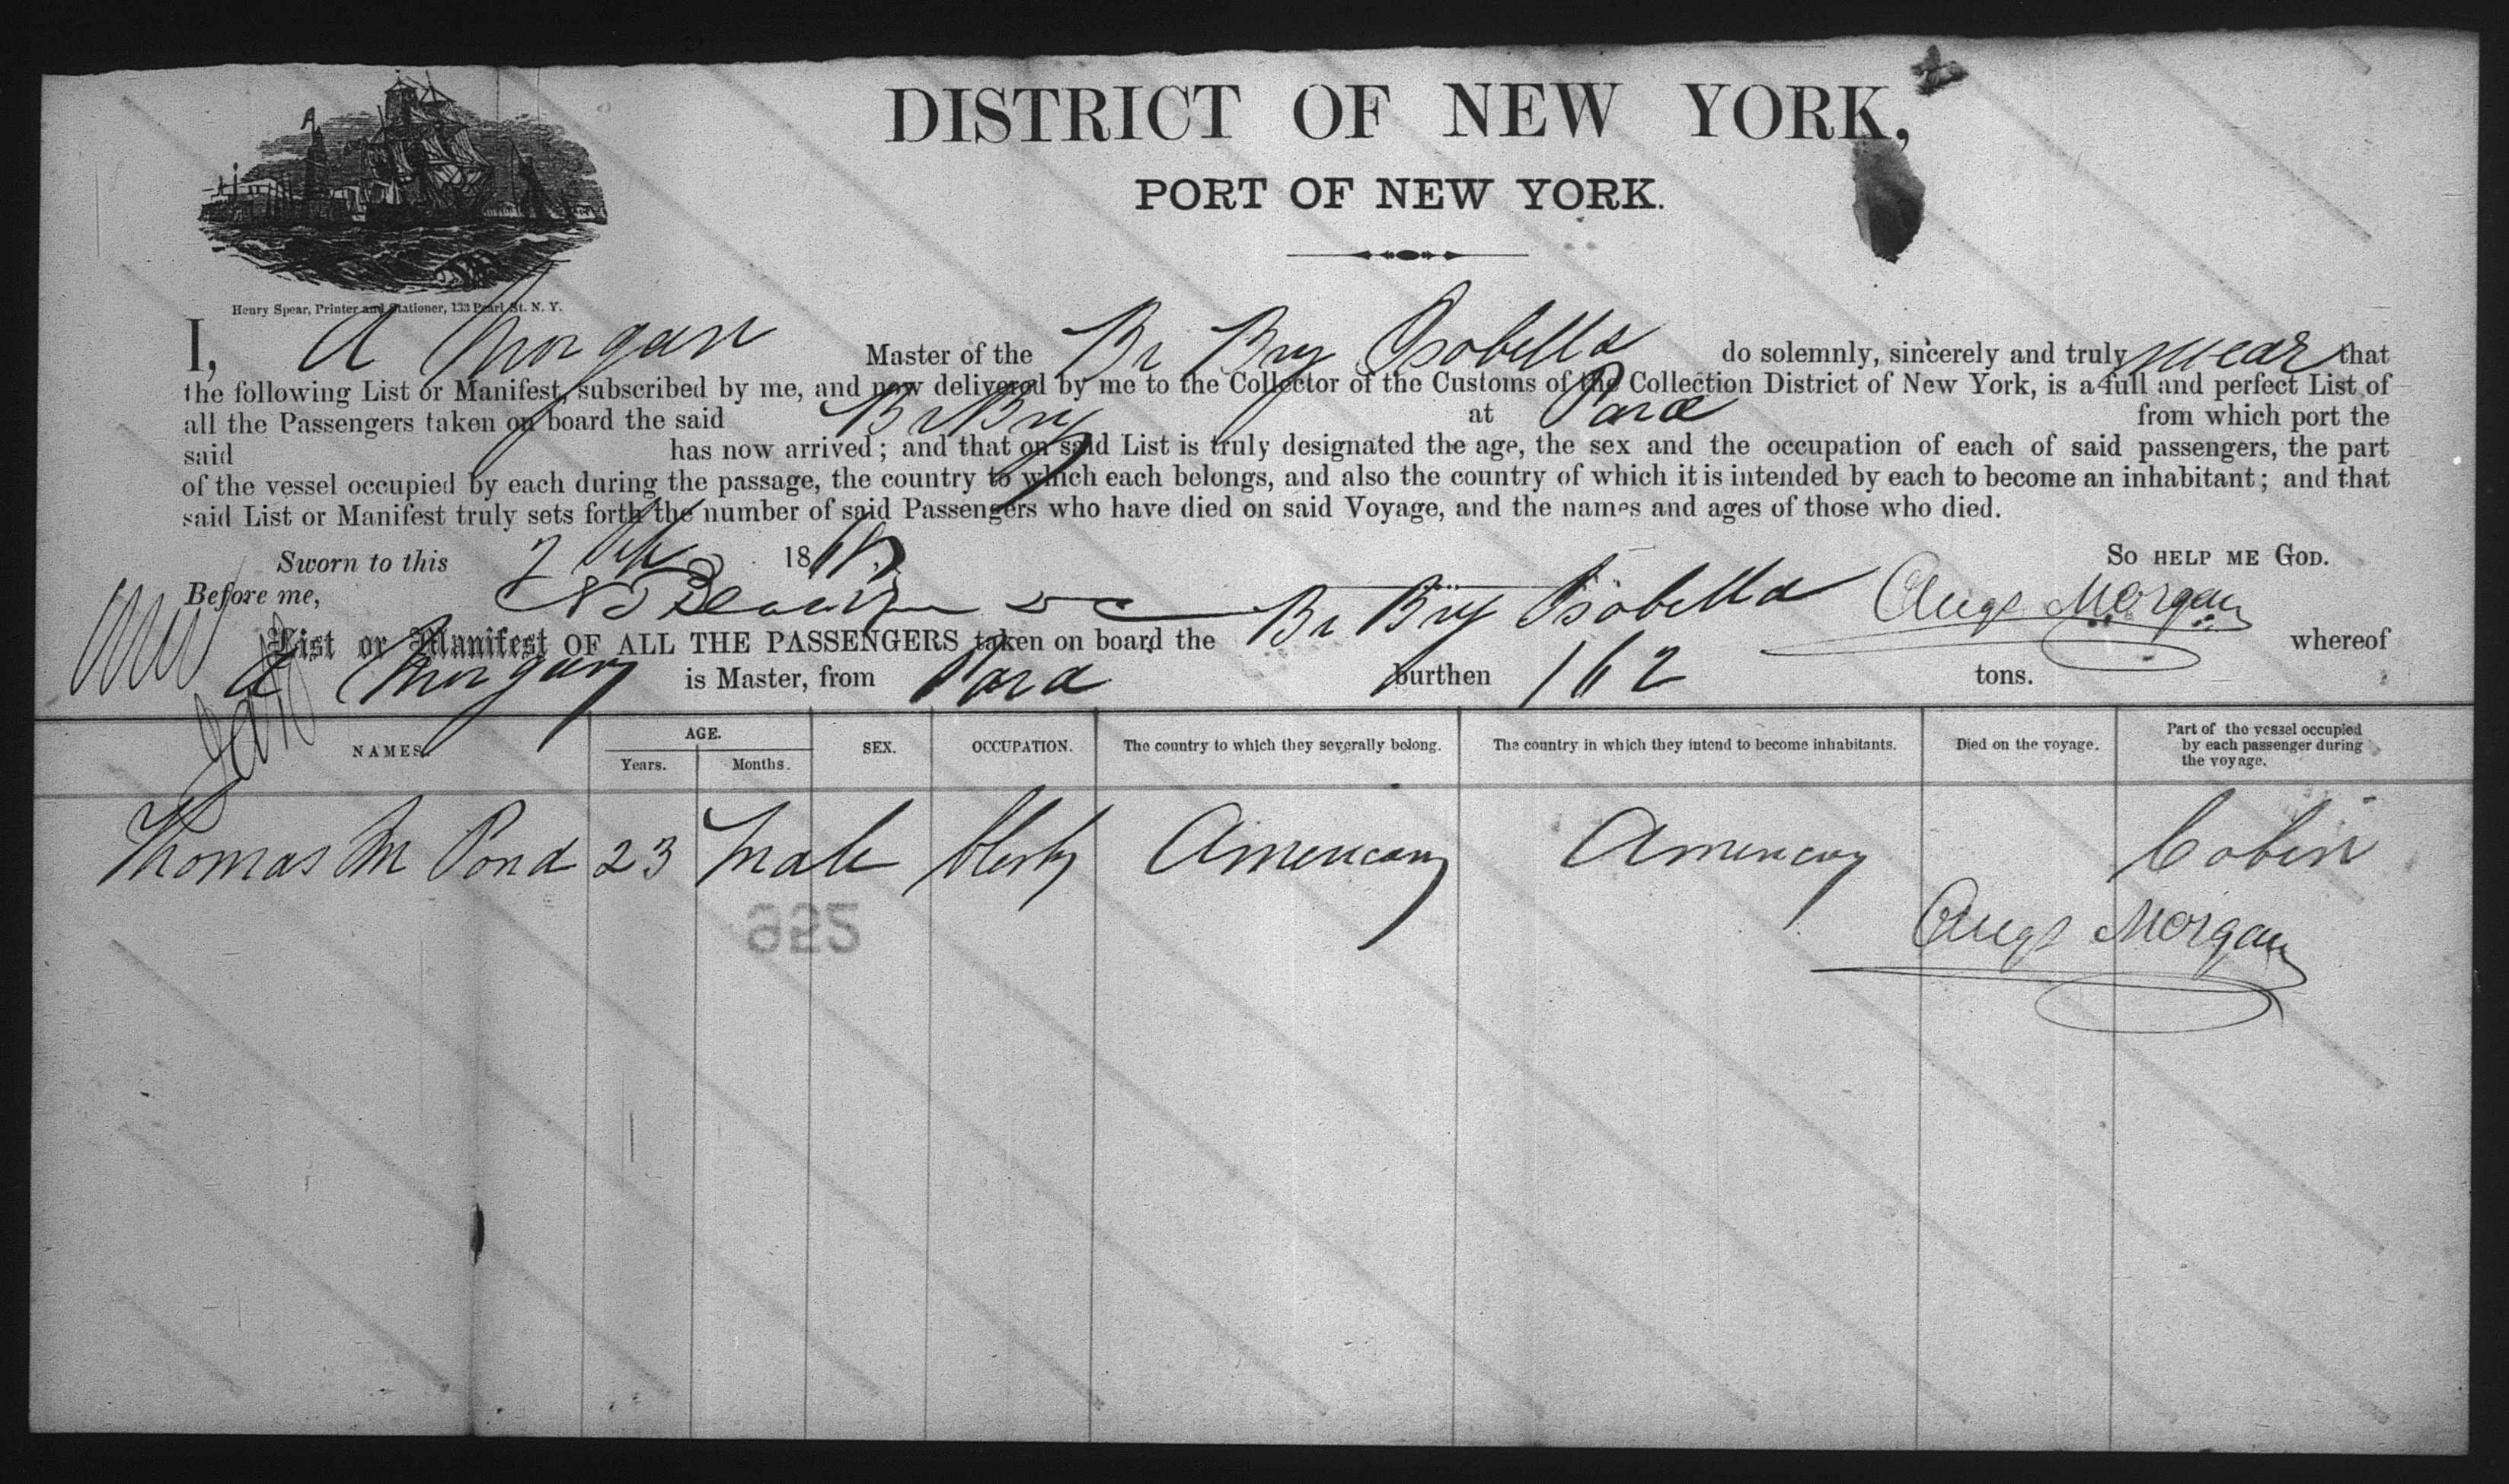 DISTRICT OF NEW YORK,
PORT OF NEW YORK.
Henry Spear, Printer and Stationer, 133 Pearl St. N. Y.
I, A Morgan Master of the Br Brg Isobella do solemnly, sincerely and truly swear that
the following List or Manifest, subscribed by me, and now delivered by me to the Collector of the Customs of the Collection District of New York, is a full and perfect List of
all the Passengers taken on board the said Br Brg at Para from which port the
said has now arrived; and that on said List is truly designated the age, the sex and the occupation of each of said passengers, the part
of the vessel occupied by each during the passage, the country to which each belongs, and also the country of which it is intended by each to become an inhabitant; and that
said List or Manifest truly sets forth the number of said Passengers who have died on said Voyage, and the names and ages of those who died.
Sworn to this 7 18 SO HELP ME GOD.
Before me, Augs Morgan
List or Manifest OF ALL THE PASSENGERS taken on board the Br Brg Isobella whereof
A Morgan is Master, from Para burthen 162 tons.
NAMES. AGE. SEX. OCCUPATION. The country to which they severally belong. The country in which they intend to become inhabitants. Died on the voyage. Part of the vessel occupied by each passenger during the voyage.
Years. Months.
Thomas M Pond 23 Male Clerk American American Cabin
Augs Morgan